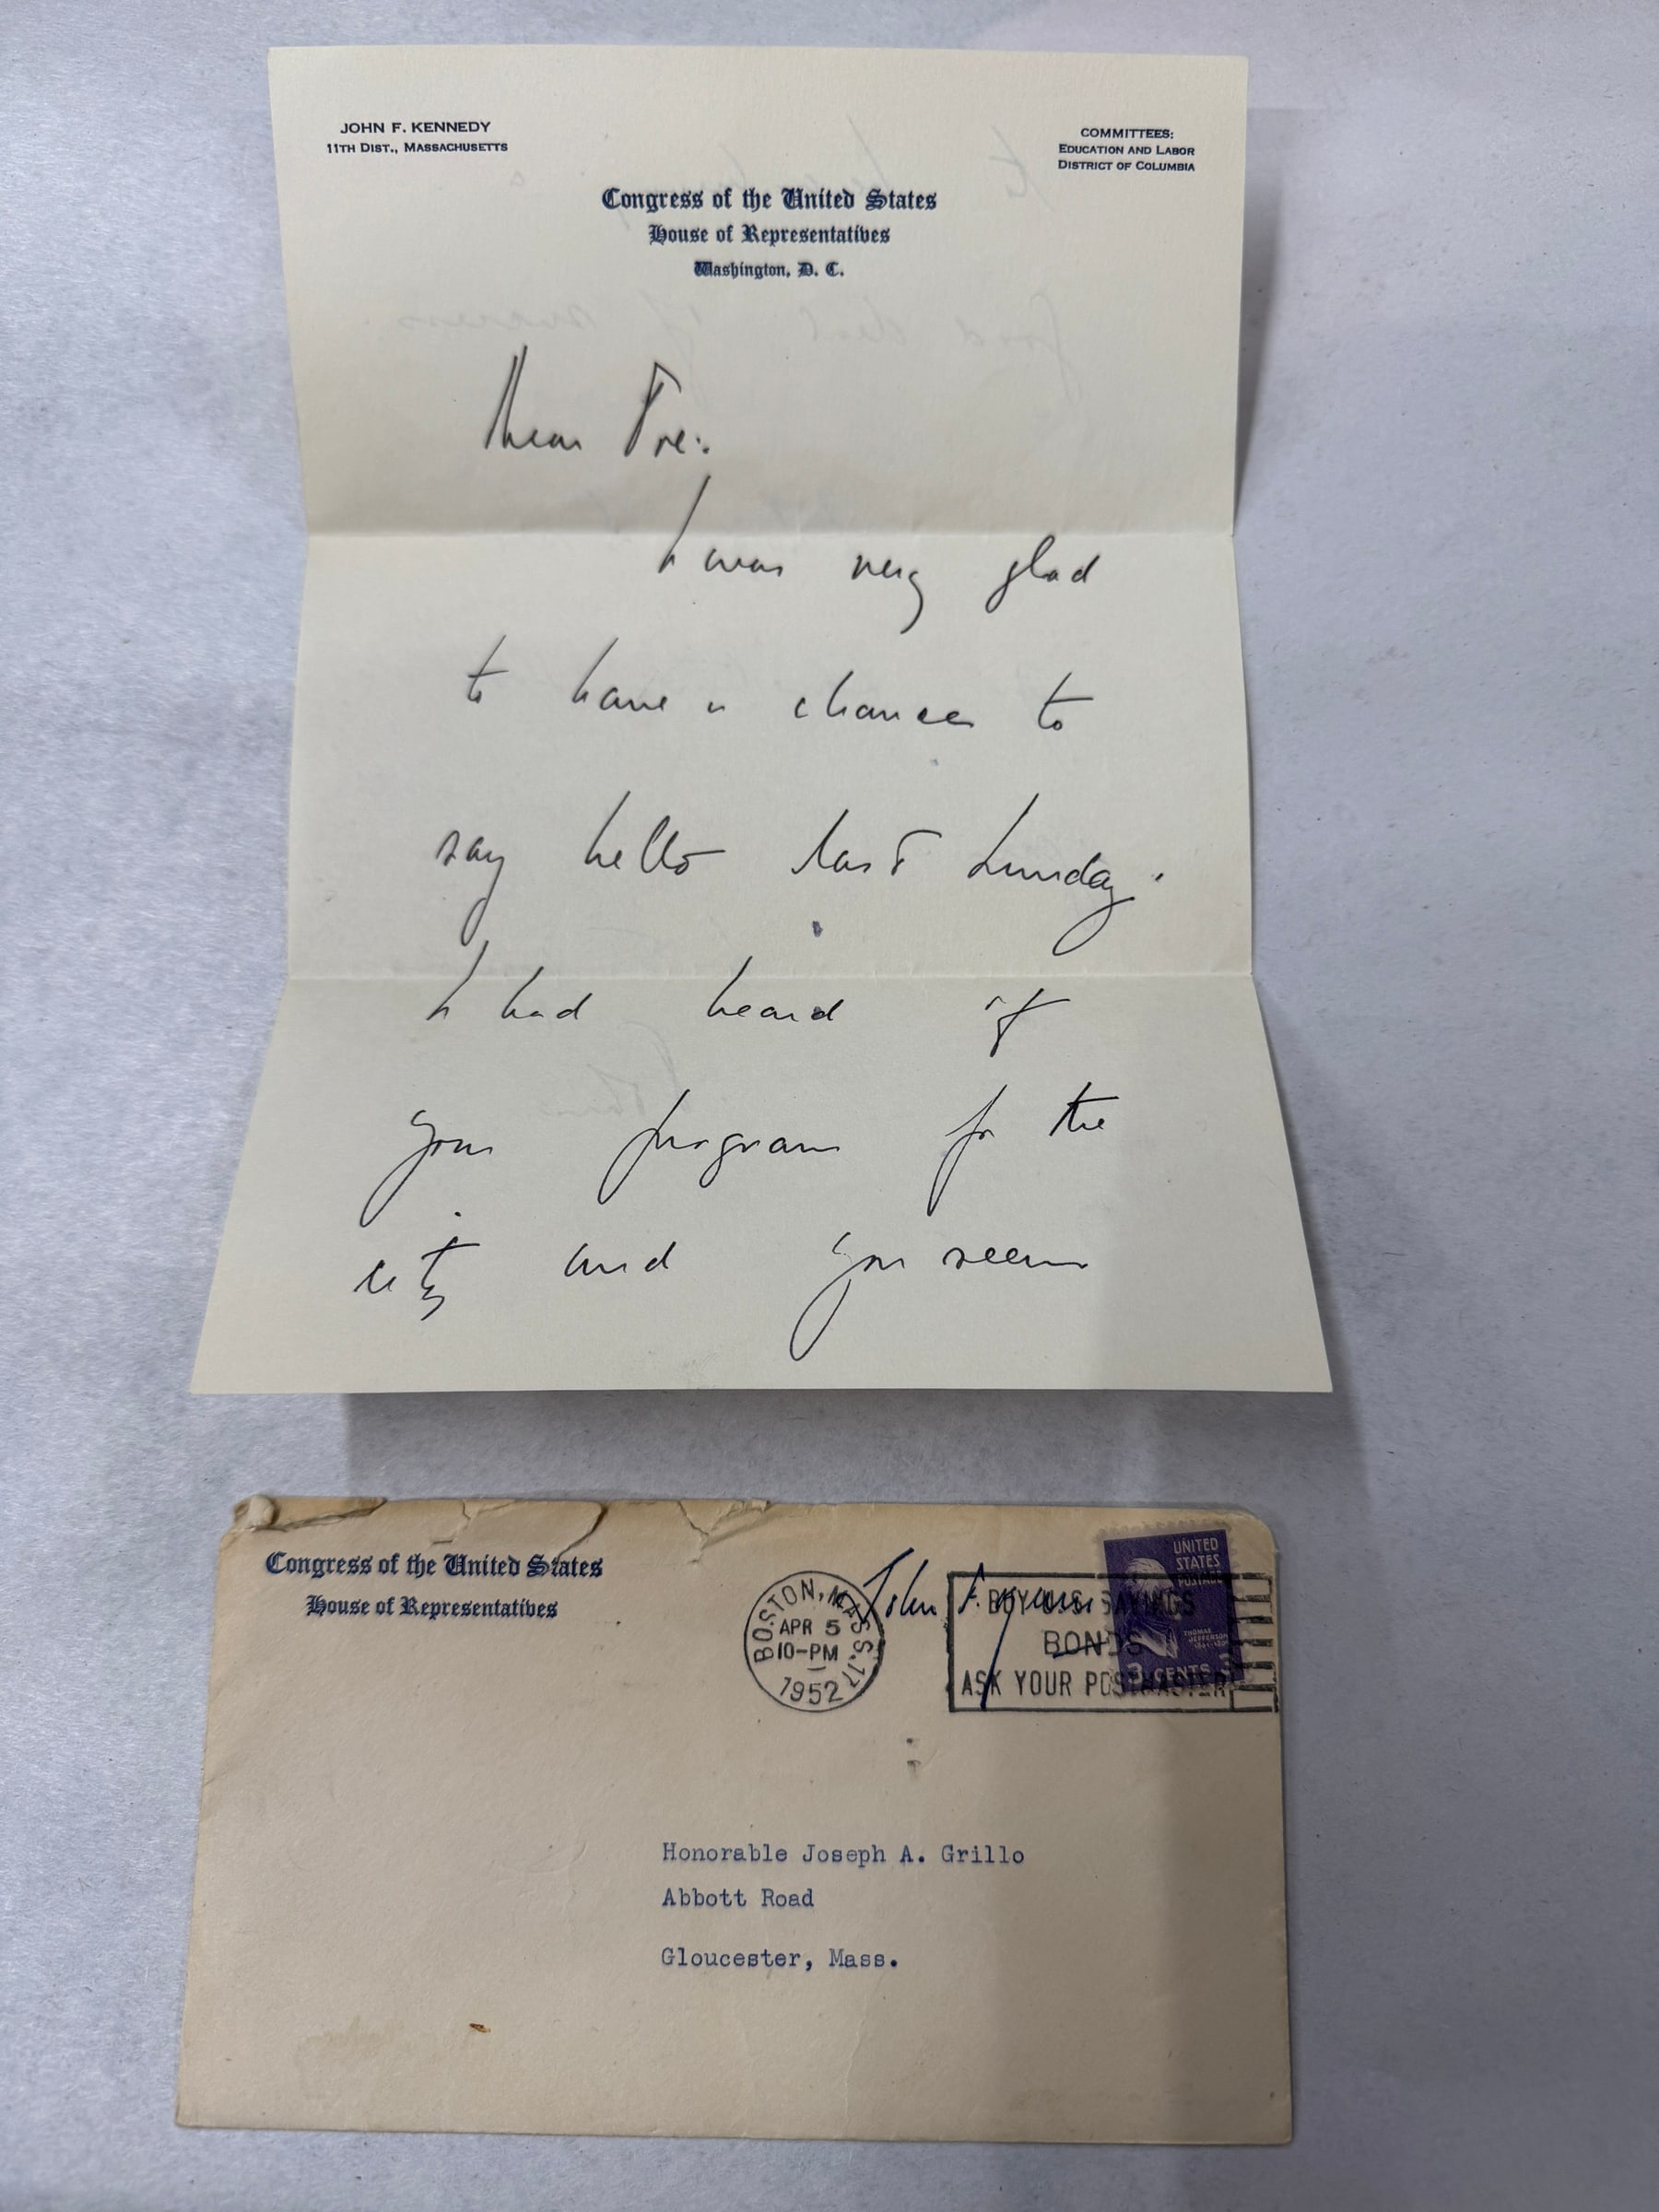 JOHN F. KENNEDY
11TH DIST., MASSACHUSETTS
COMMITTEES:
EDUCATION AND LABOR
DISTRICT OF COLUMBIA
Congress of the United States
House of Representatives
Washington, D. C.
Dear Joe:
I was very glad
to have a chance to
say hello last Sunday.
I had heard of
your program for the
city and you seem
Congress of the United States
House of Representatives
BOSTON, MASS. 17
APR 5
10-PM
1952
John F. Kennedy
BUY U.S. SAVINGS
BONDS
ASK YOUR POSTMASTER
UNITED
STATES
POSTAGE
THOMAS
JEFFERSON
3 CENTS 3
Honorable Joseph A. Grillo
Abbott Road
Gloucester, Mass.